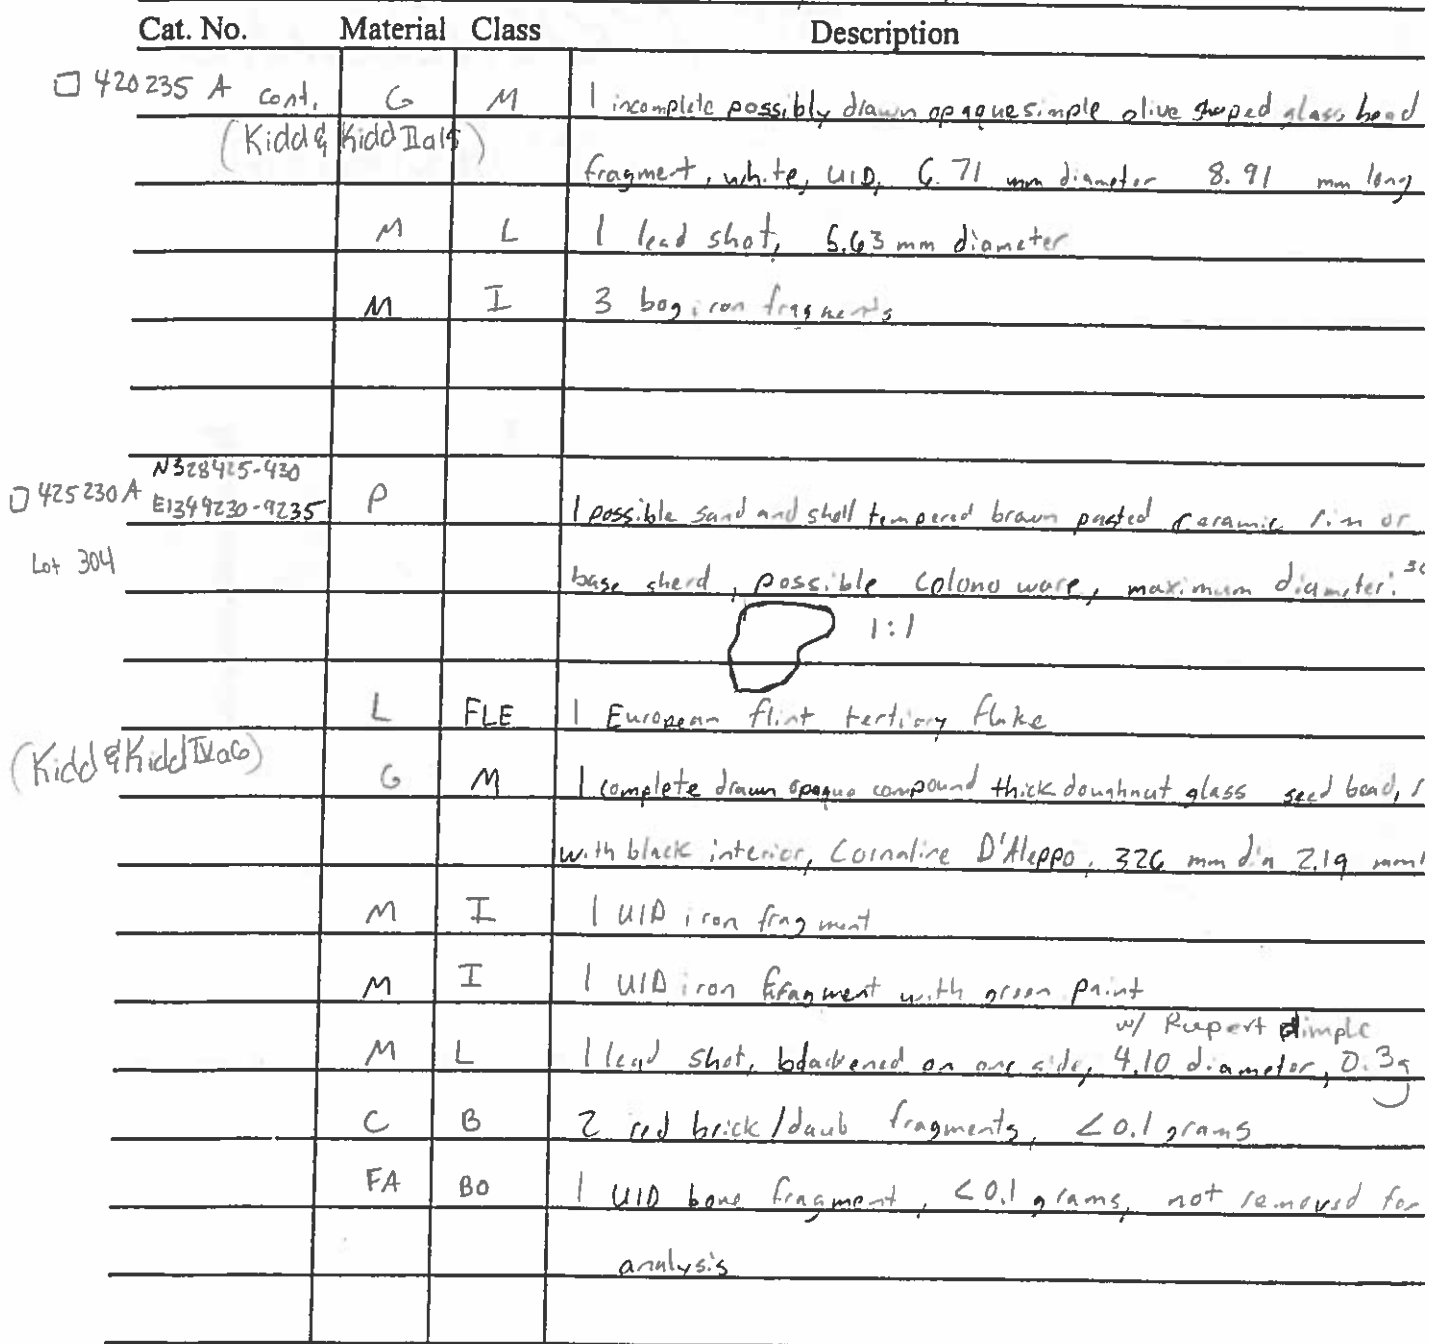 Cat. No. Material Class Description
□ 420235 A cont. G M 1 incomplete possibly drawn opaque simple olive shaped glass bead
(Kidd & Kidd IIa15)
fragment, white, UID, 6.71 mm diameter 8.91 mm long
M L 1 lead shot, 5.63 mm diameter
M I 3 bog iron fragments
N328425-430
□ 425230 A E1349230-9235 P 1 possible sand and shell tempered brown pasted ceramic rim or
Lot 304
base sherd, possible Colono ware, maximum diameter:
1:1
L FLE 1 European flint tertiary flake
(Kidd & Kidd IVa6)
G M 1 complete drawn opaque compound thick doughnut glass seed bead,
with black interior, Cornaline D'Aleppo, 3.26 mm dia 2.19 mm
M I 1 UID iron fragment
M I 1 UID iron fragment with green paint
w/ Rupert dimple
M L 1 lead shot, bdackened on one side, 4.10 diameter, 0.3g
C B 2 red brick/daub fragments, <0.1 grams
FA BO 1 UID bone fragment, <0.1 grams, not removed for
analysis